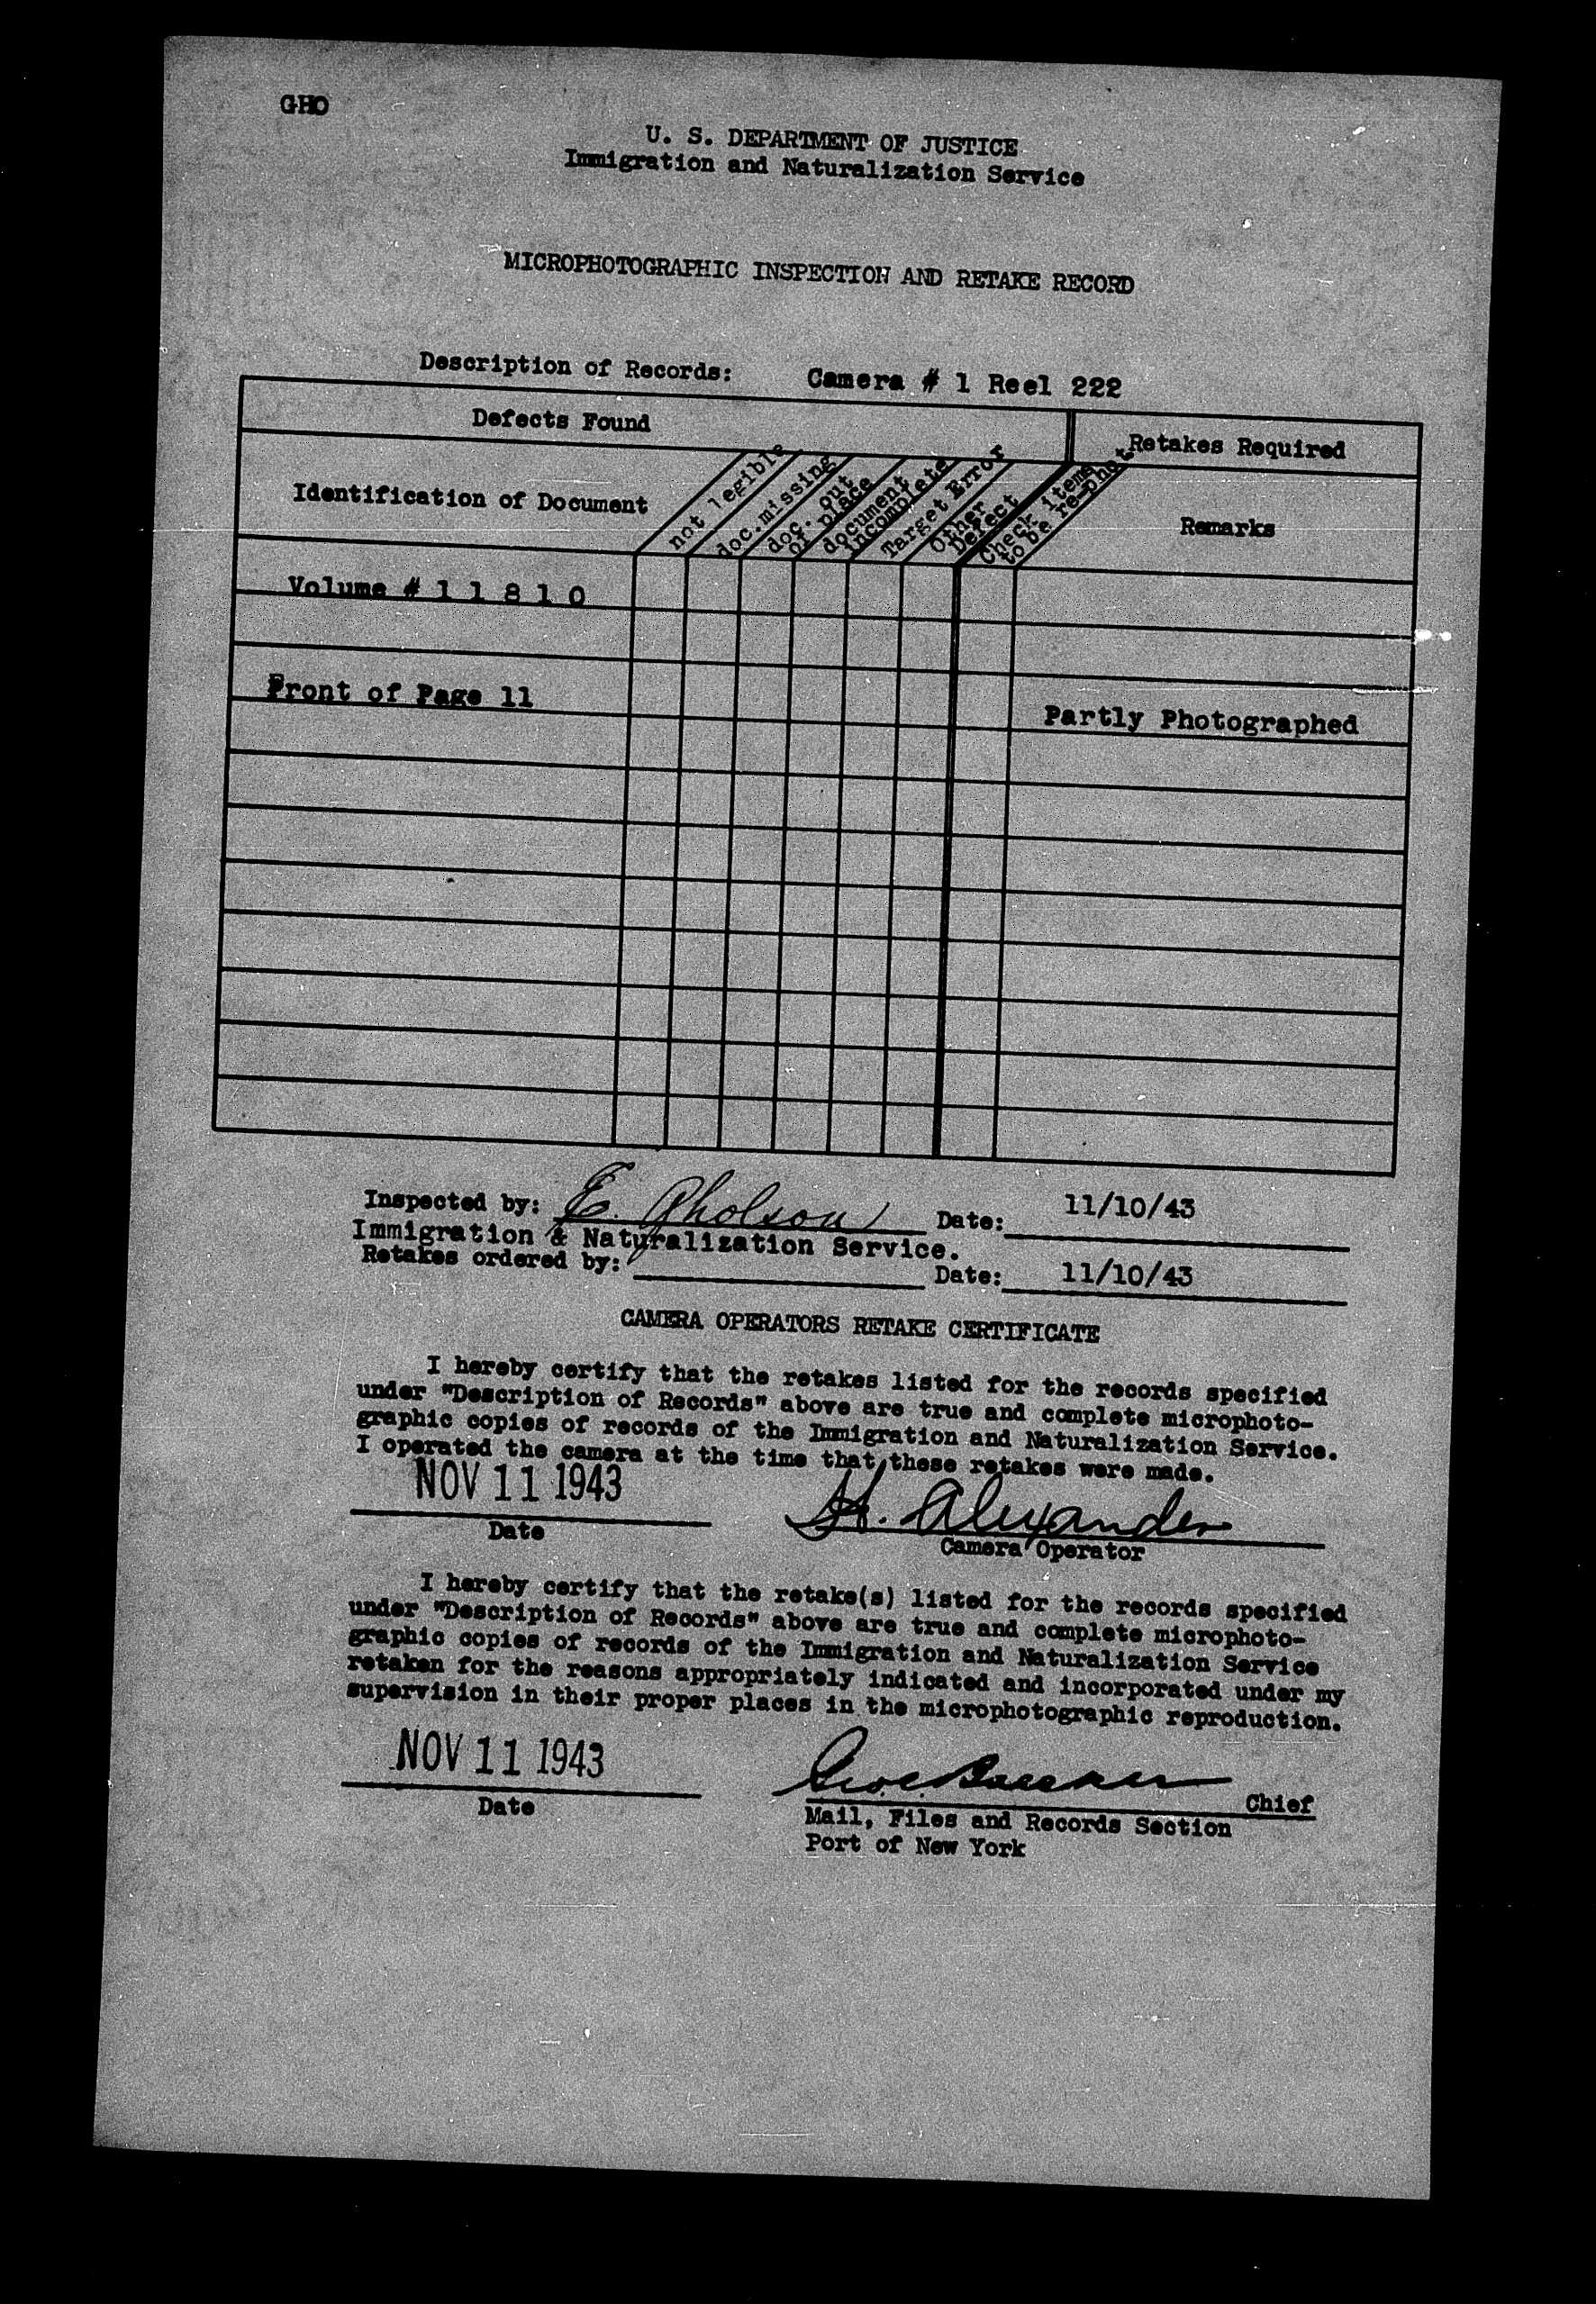 GHO
U. S. DEPARTMENT OF JUSTICE
Immigration and Naturalization Service
MICROPHOTOGRAPHIC INSPECTION AND RETAKE RECORD
Description of Records: Camera # 1 Reel 222
Defects Found
Retakes Required
Identification of Document
not legible
doc. missing
doc. out of place
document incomplete
Target Error
Other Defect
Check items to be re-phot.
Remarks
Volume # 1 1 8 1 0
Front of Page 11
Partly Photographed
Inspected by: E. Gholson Date: 11/10/43
Immigration & Naturalization Service.
Retakes ordered by: Date: 11/10/43
CAMERA OPERATORS RETAKE CERTIFICATE
I hereby certify that the retakes listed for the records specified
under "Description of Records" above are true and complete microphoto-
graphic copies of records of the Immigration and Naturalization Service.
I operated the camera at the time that these retakes were made.
NOV 11 1943
H. Alexander
Date
Camera Operator
I hereby certify that the retake(s) listed for the records specified
under "Description of Records" above are true and complete microphoto-
graphic copies of records of the Immigration and Naturalization Service
retaken for the reasons appropriately indicated and incorporated under my
supervision in their proper places in the microphotographic reproduction.
NOV 11 1943
Chief
Date
Mail, Files and Records Section
Port of New York